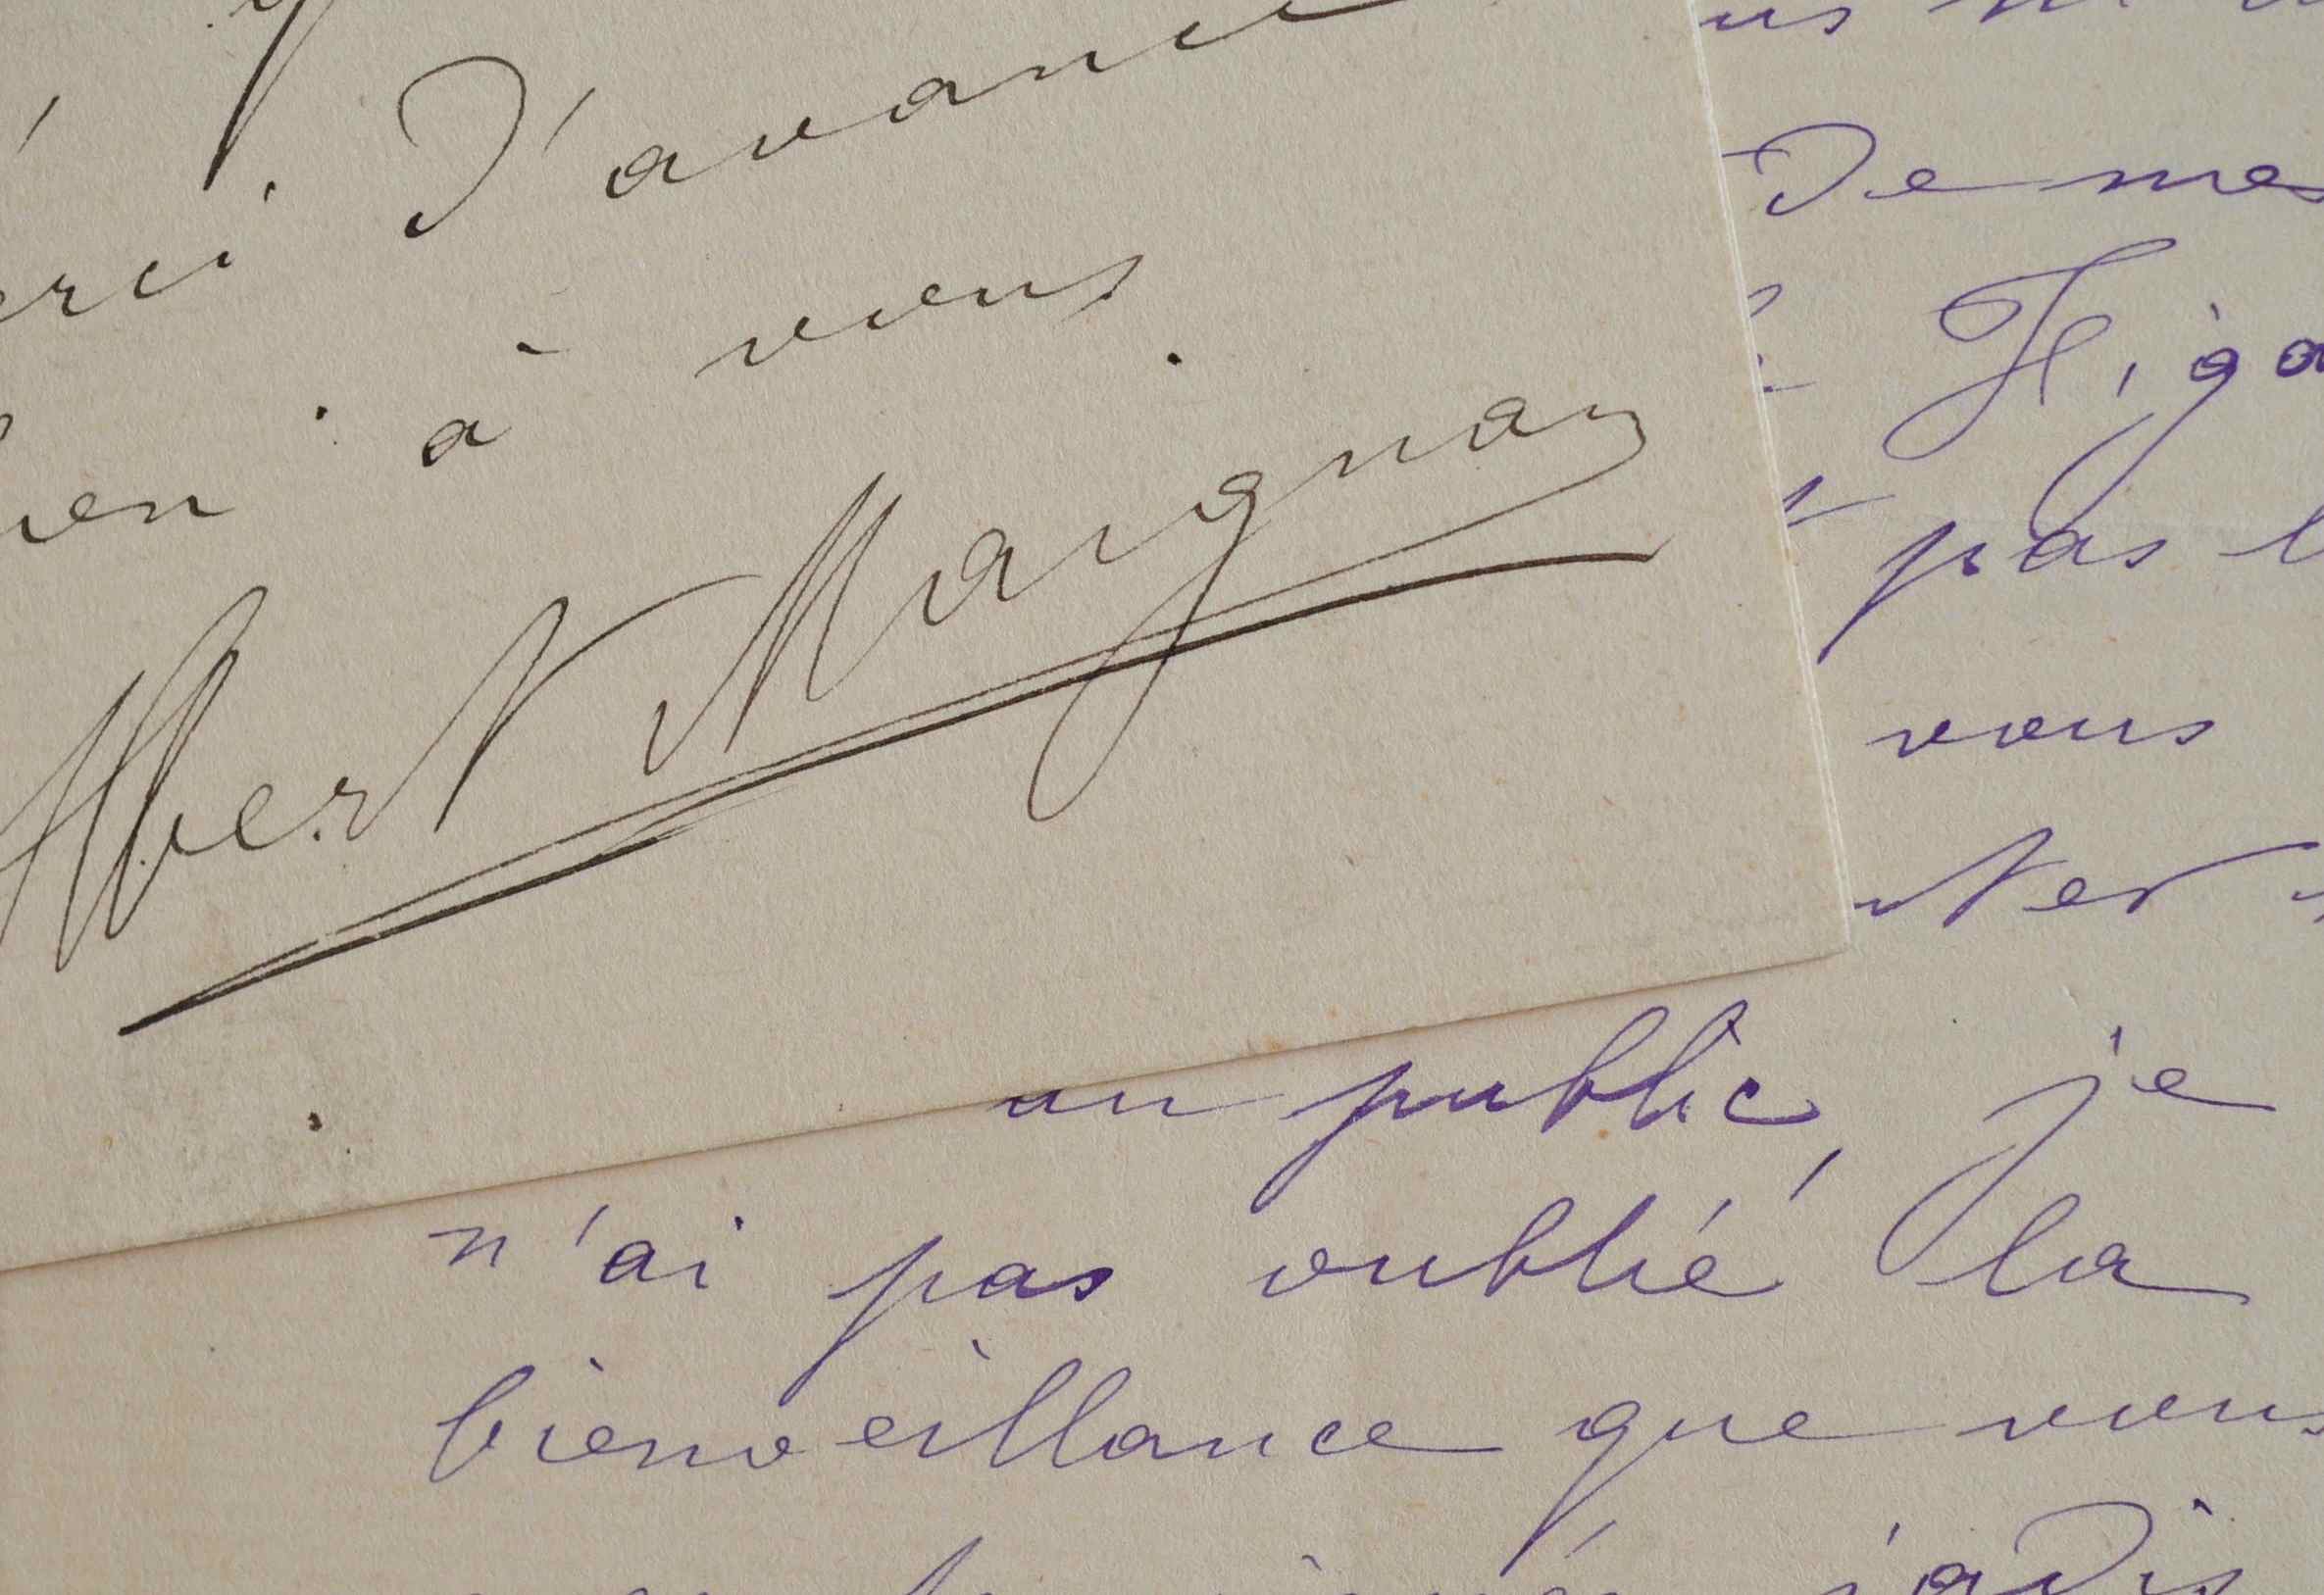 merci d'avance
bien à vous.
Albert Maignan
de mes
Figa
pas l
vous
ter
un public, je
n'ai pas oublié la
bienveillance que vous
jadis